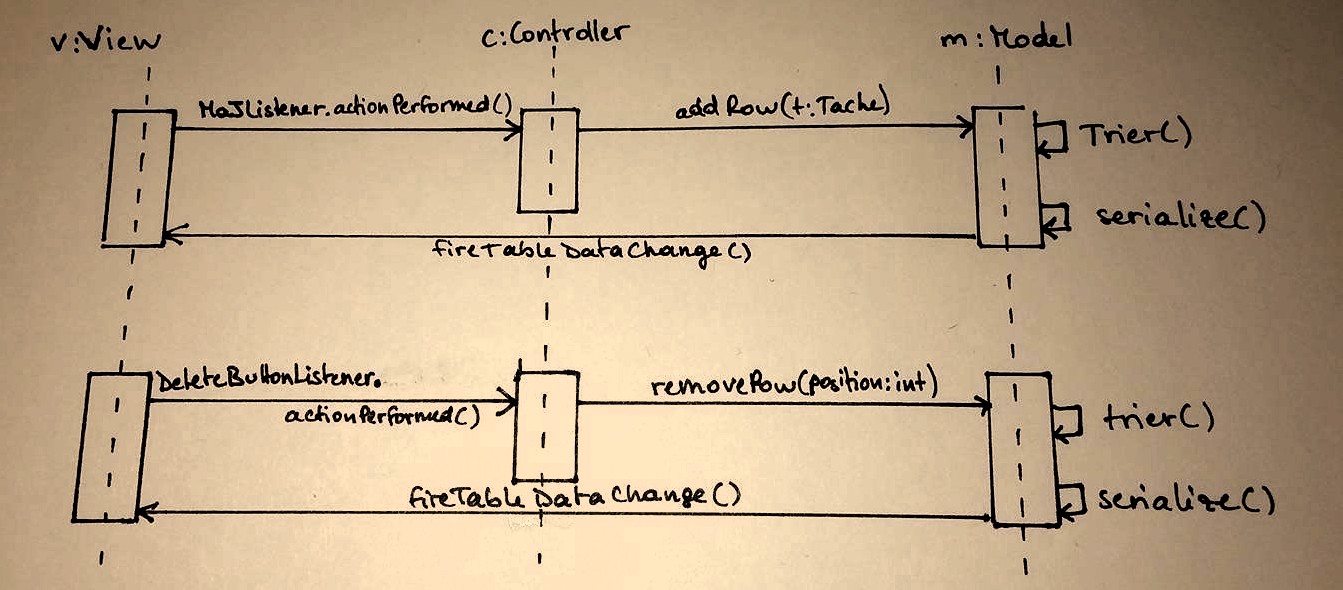 v:View
c:Controller
m:Model
MaJListener.actionPerformed()
addRow(t:Tache)
Trier()
serialize()
fireTableDataChange()
DeleteButtonListener.
actionPerformed()
removeRow(position:int)
trier()
serialize()
fireTableDataChange()